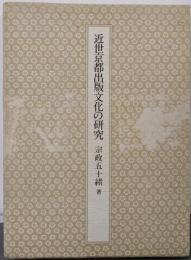 近世京都出版文化の研究
宗政五十緒 著